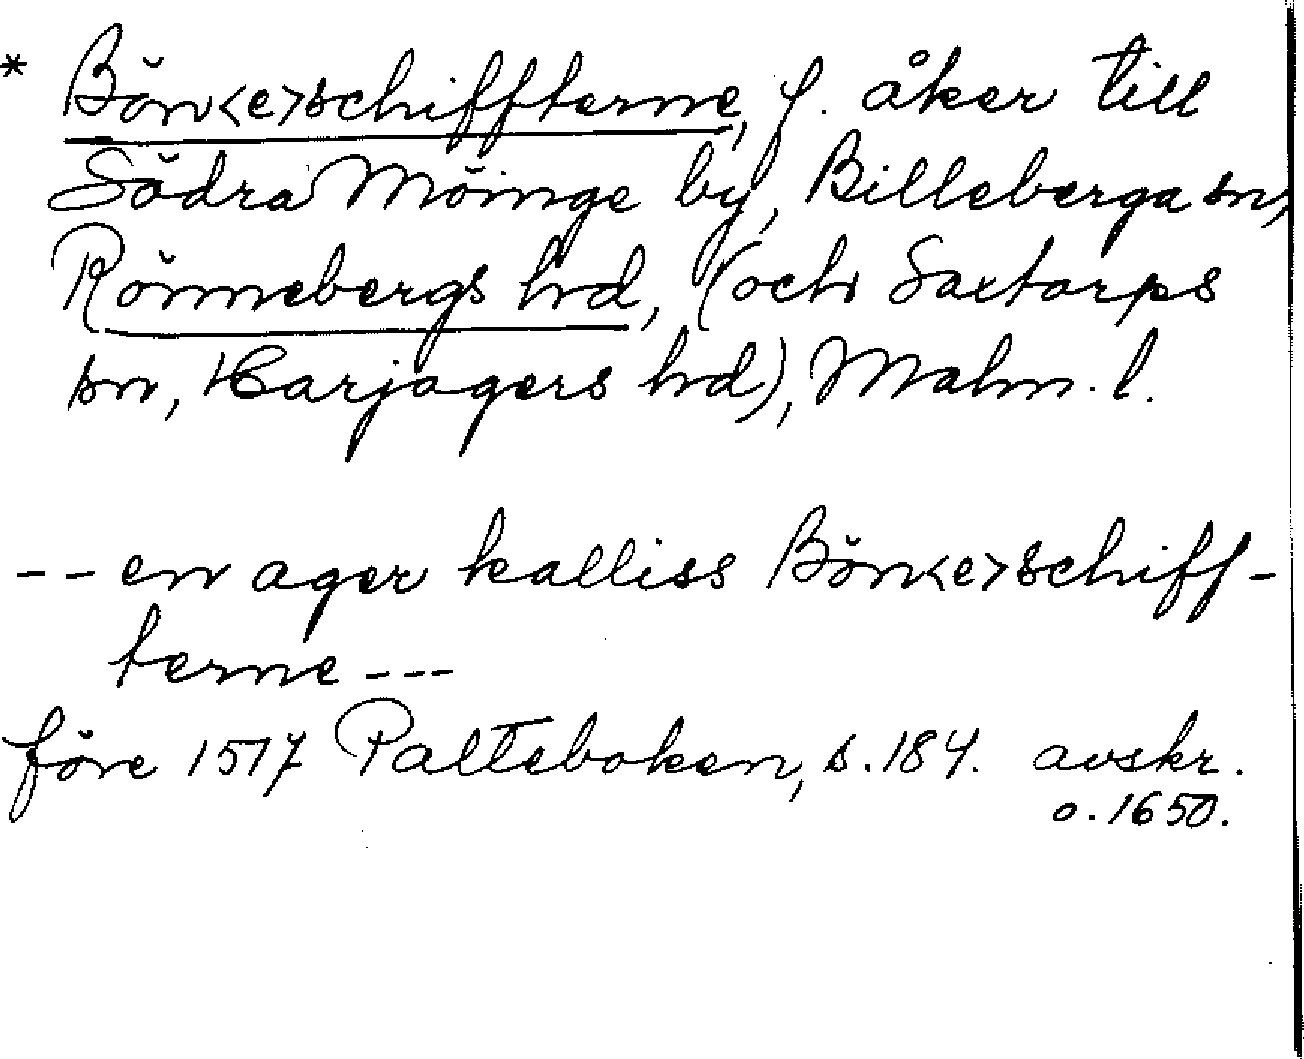 * Bön<e>schiffterne, f. åker till
Södra Möinge by, Billeberga sn,
Rönnebergs hrd, (och Saxtorps
sn, Harjagers hrd), Malm. l.
-- en ager kalliss Bön<e>schiff-
terne ---
före 1517 Palteboken, s. 184. avskr.
o. 1650.